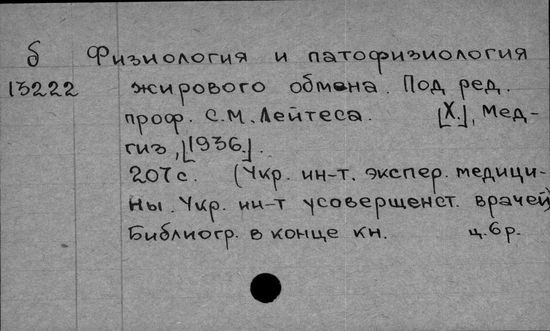 б Физиология и патофизиология
13222 жирового обмена. Под ред.
проф. С.М. Лейтеса. [Х.], Мед-
гиз, [1936.].
207 с. (Укр. ин-т. экспер. медици-
ны. Укр. ин-т усовершенст. врачей)
Библиогр. в конце кн. ц. 6 р.